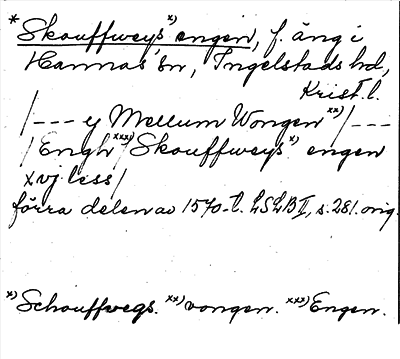 * Skouffweys x) engen, f. äng i
Hannas sn, Ingelstads hd,
Krist. l.
/--- y Mellum Wongen xx) /---
/Engh xxx) / Skouffweys x) engen
xvj less/
förra delen av 1570-t. LSLB II, s. 281. orig.
x) Schouffvegs. xx) vongen. xxx) Engen.